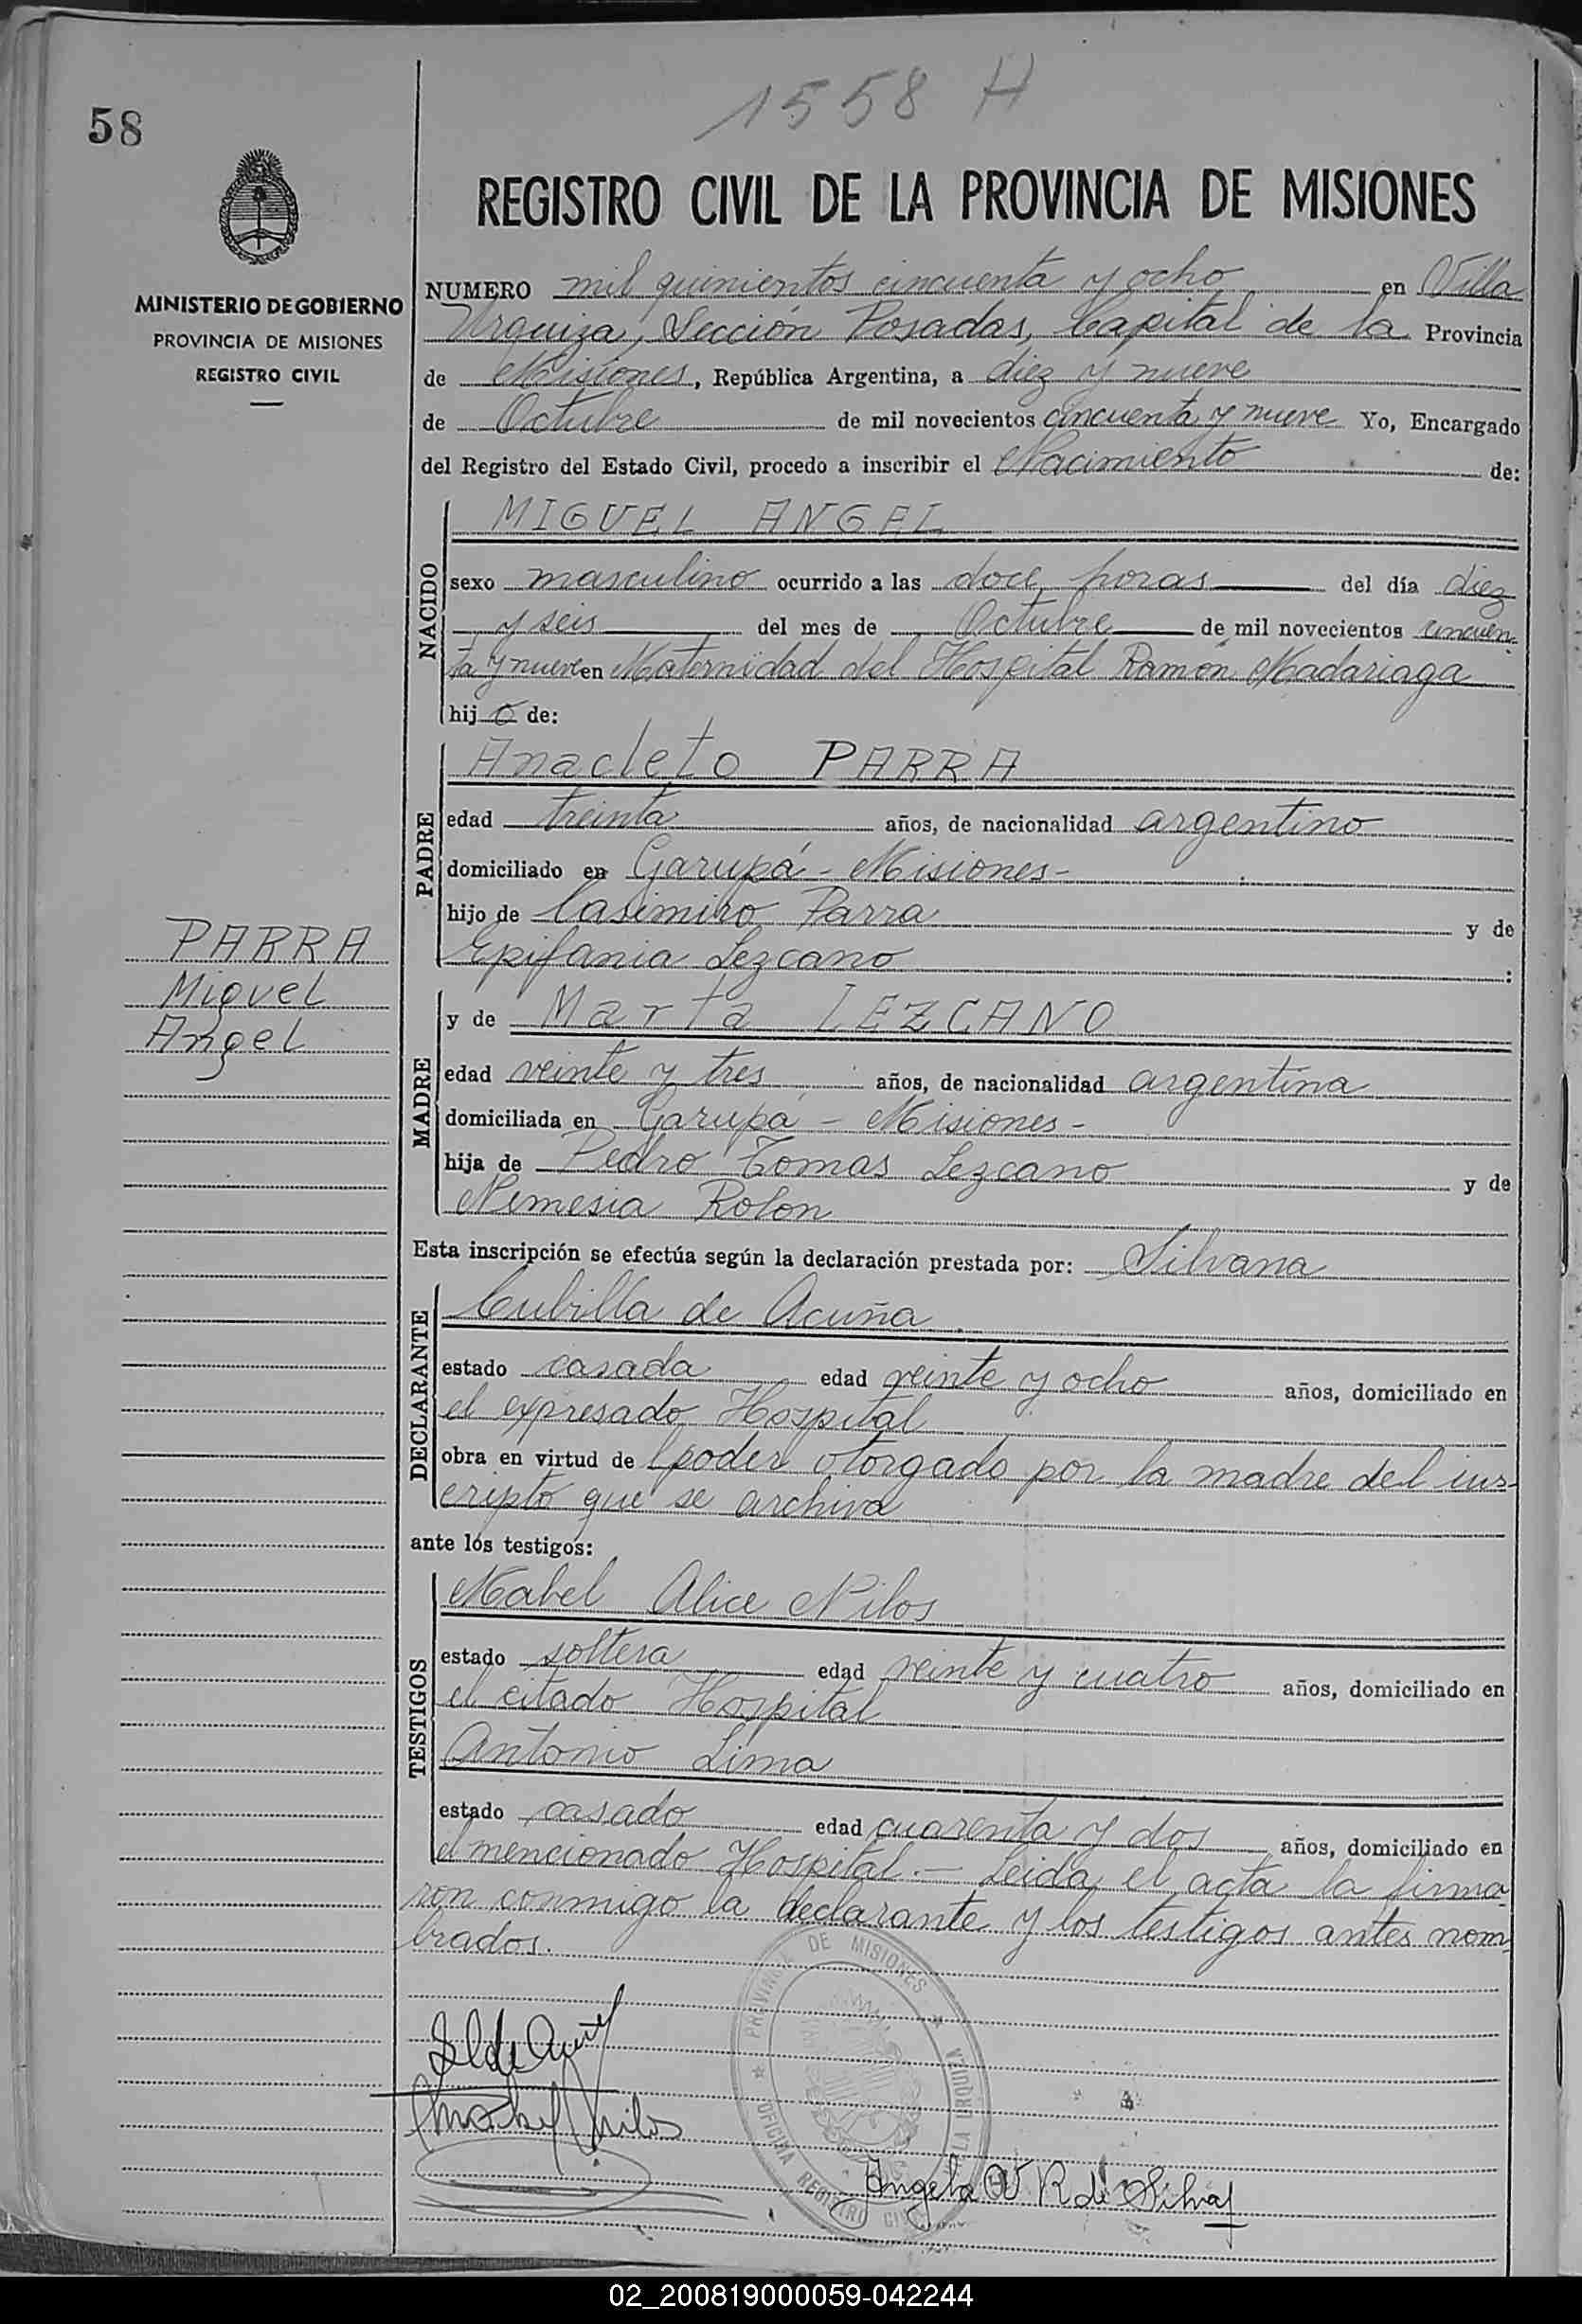 1558 H
58
REGISTRO CIVIL DE LA PROVINCIA DE MISIONES
MINISTERIO DE GOBIERNO
PROVINCIA DE MISIONES
REGISTRO CIVIL
NUMERO mil quinientos cincuenta y ocho en Villa
Urquiza, Sección Posadas, Capital de la Provincia
de Misiones, República Argentina, a diez y nueve
de Octubre de mil novecientos cincuenta y nueve Yo, Encargado
del Registro del Estado Civil, procedo a inscribir el Nacimiento de:
NACIDO
MIGUEL ANGEL
sexo masculino ocurrido a las doce horas del día diez
y seis del mes de Octubre de mil novecientos cincuen-
ta y nueve en Maternidad del Hospital Ramón Madariaga
hijo de:
PADRE
Anacleto PARRA
edad treinta años, de nacionalidad argentino
domiciliado en Garupá - Misiones -
hijo de Casimiro Parra y de
Epifania Lezcano :
PARRA
Miguel
Angel
MADRE
y de Marta LEZCANO
edad veinte y tres años, de nacionalidad argentina
domiciliada en Garupá - Misiones -
hija de Pedro Tomas Lezcano y de
Nemesia Rolon
Esta inscripción se efectúa según la declaración prestada por: Silvana
DECLARANTE
Cubilla de Acuña
estado casada edad veinte y ocho años, domiciliado en
el expresado Hospital
obra en virtud de l poder otorgado por la madre del ins-
cripto que se archiva
ante los testigos:
TESTIGOS
Mabel Alice Nilos
estado soltera edad veinte y cuatro años, domiciliado en
el citado Hospital
Antonio Lima
estado casado edad cuarenta y dos años, domiciliado en
el mencionado Hospital.- Leida el acta la firma
ron conmigo la declarante y los testigos antes nom
brados.
PROVINCIA DE MISIONES
OFICINA REGISTRO CIVIL
VILLA URQUIZA
Angela R de Silva
02_200819000059-042244